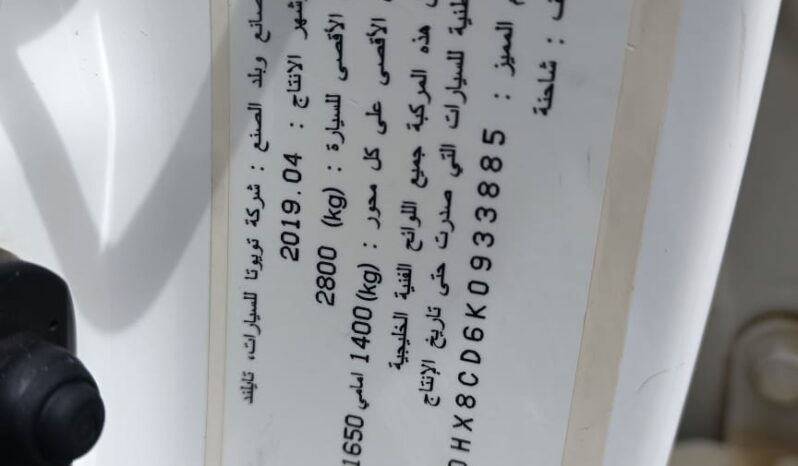 صانع وبلد الصنع : شركة تويوتا للسيارات، تايلند
شهر الانتاج : 2019.04
الأقصى للسيارة : (kg) 2800
الأقصى على كل محور : (kg) 1400 امامي 1650
هذه المركبة جميع اللوائح الفنية الخليجية
للسيارات التي صدرت حتى تاريخ الإنتاج
المميز : 0HX8CD6K0933885
: شاحنة